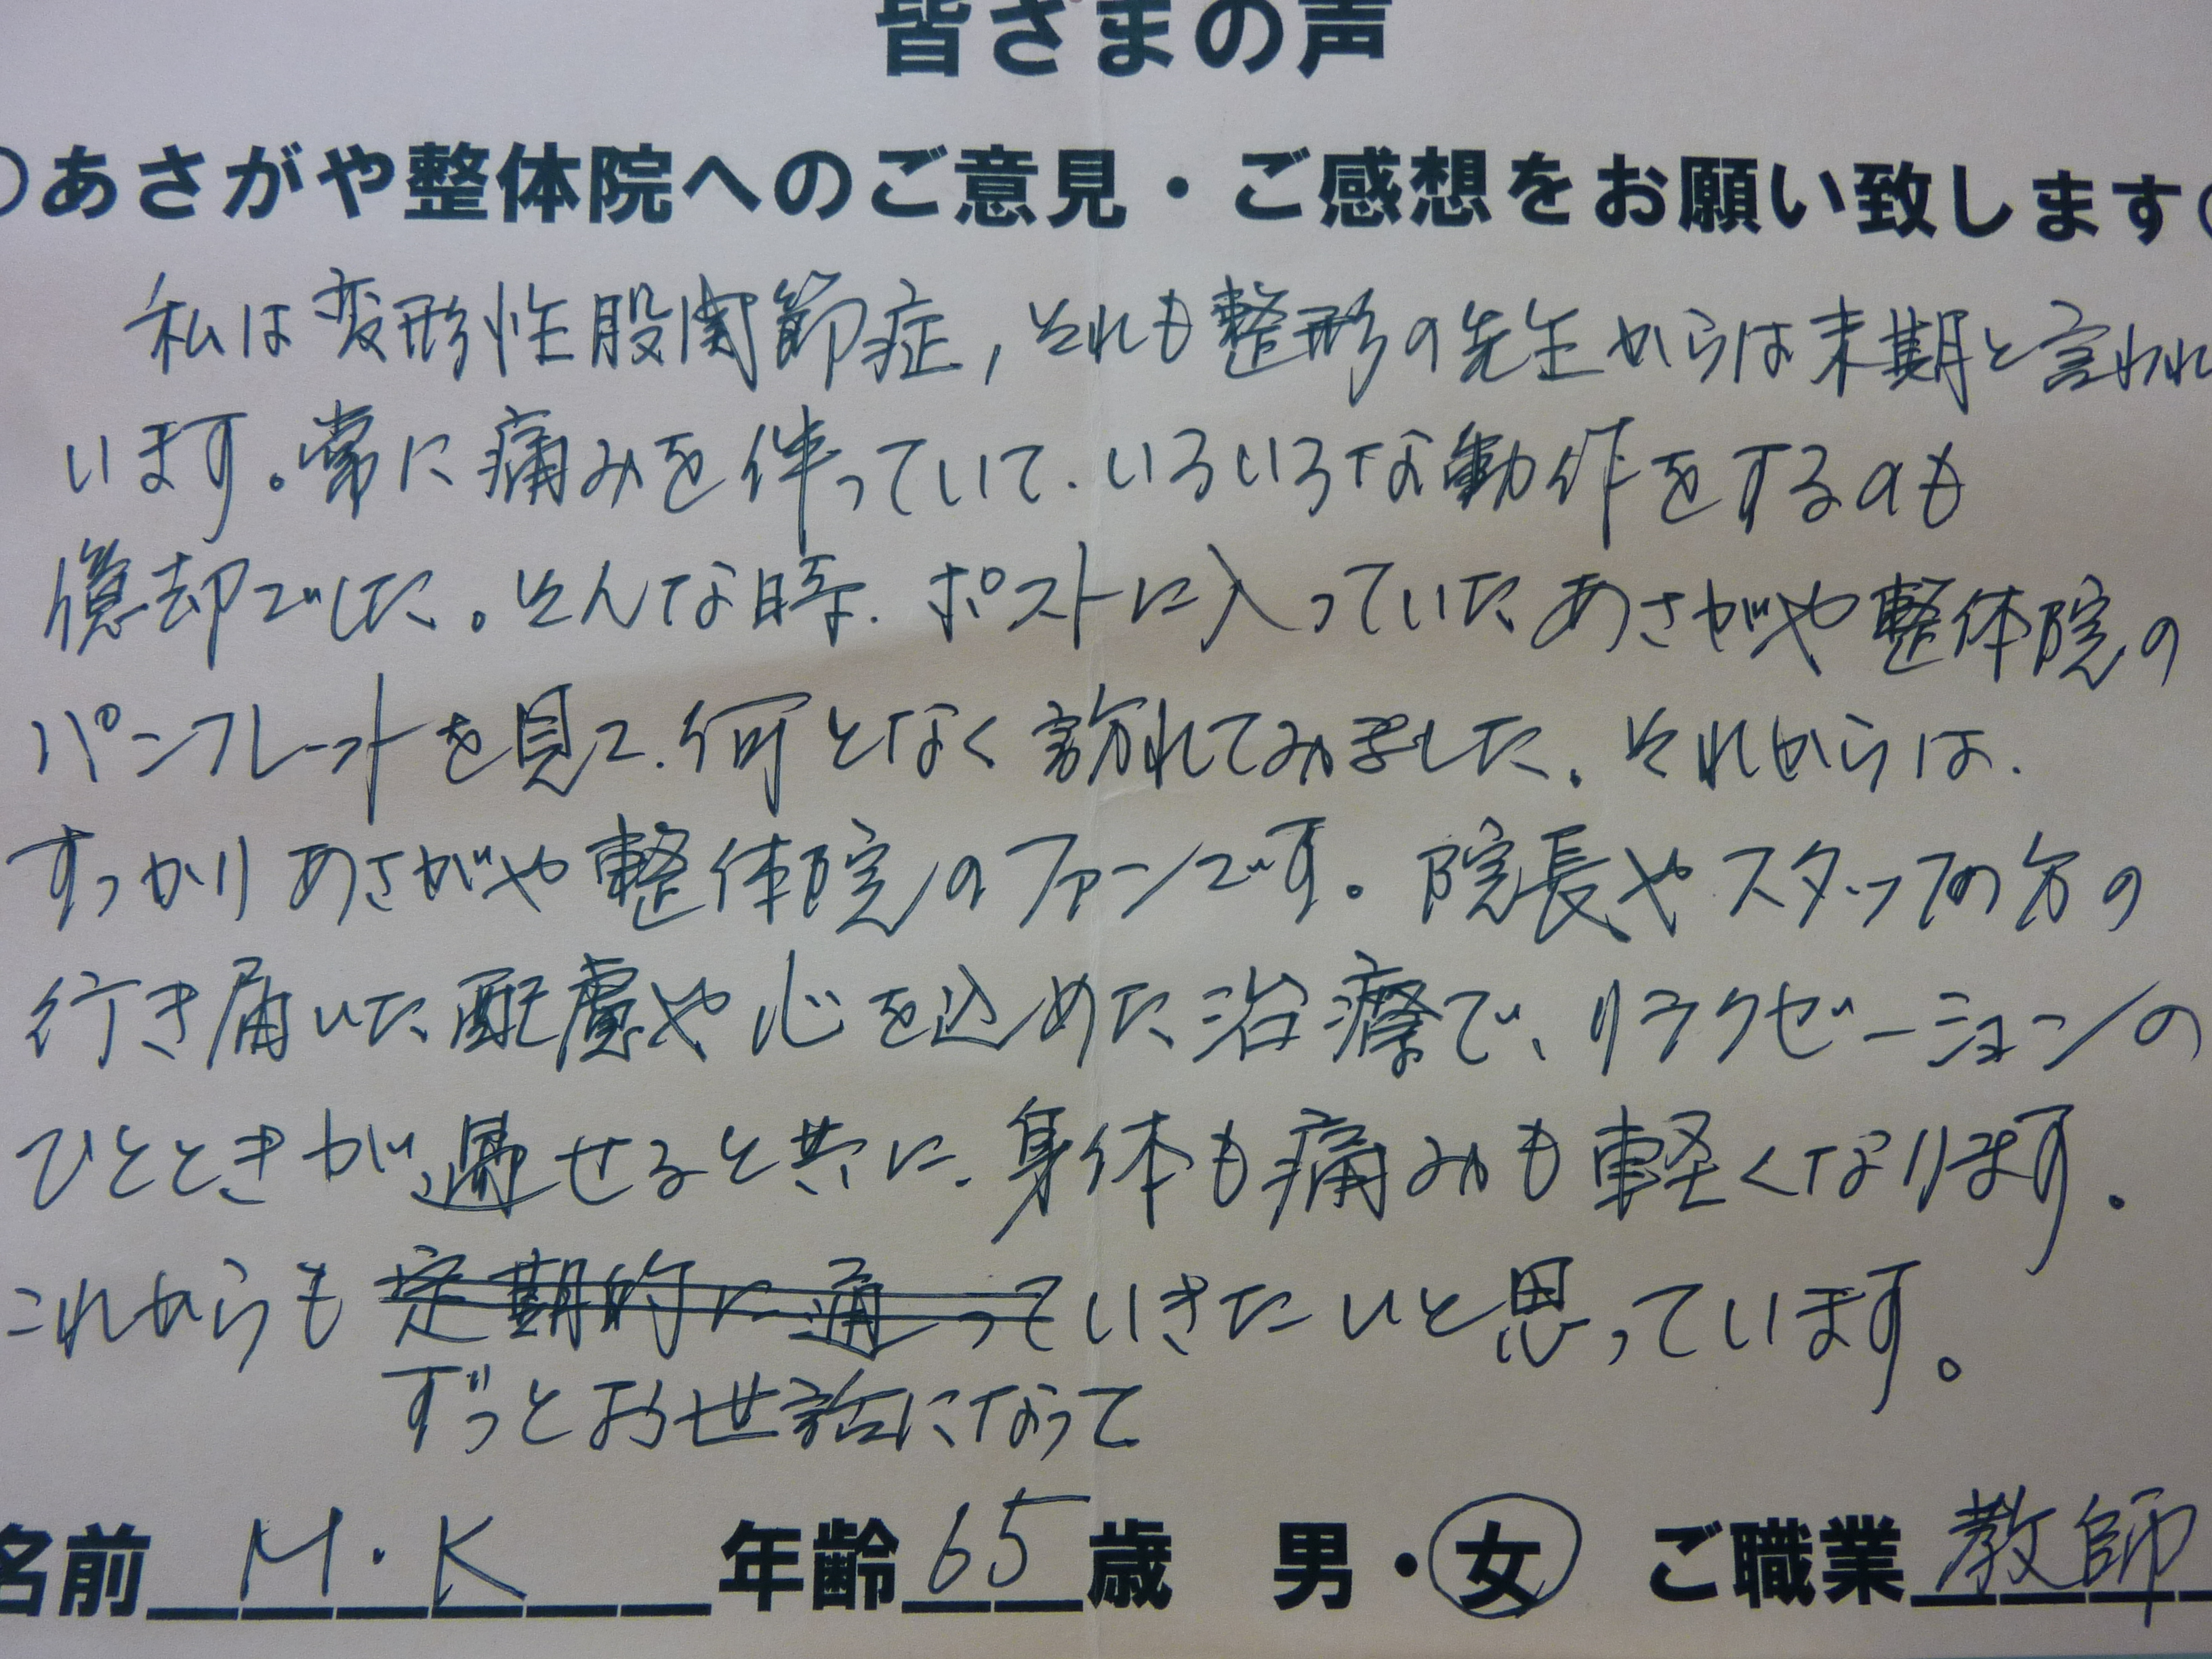 皆さまの声
○あさがや整体院へのご意見・ご感想をお願い致します○
私は変形性股関節症,それも整形の先生からは末期と言われ
います。常に痛みを伴っていて、いろいろな動作をするのも
億却でした。そんな時、ポストに入っていたあさがや整体院の
パンフレットを見て、何となく訪れてみました。それからは、
すっかりあさがや整体院のファンです。院長やスタッフの方の
行き届いた配慮や心を込めた治療で、リラクゼーションの
ひとときが過せると共に、身体も痛みも軽くなります。
これからも定期的に通っていきたいと思っています。
ずっとお世話になって
名前 M・K 年齢 65 歳 男・女 ご職業 教師